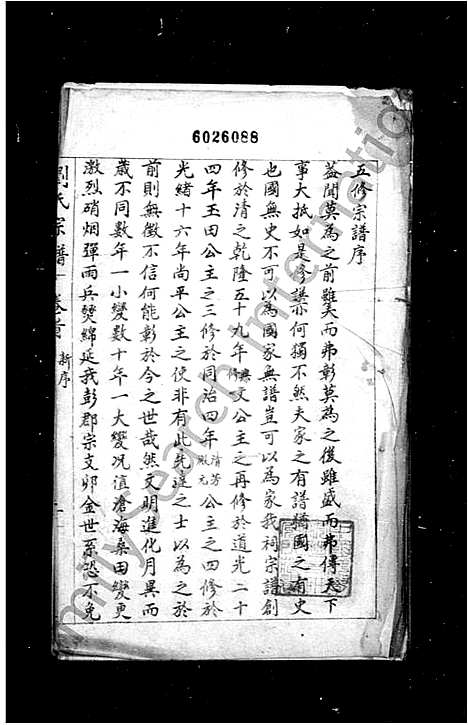 6026088
五修宗譜序
蓋聞莫為之前雖美而弗彰莫為之後雖盛而弗傳天下
事大抵如是修譜亦何獨不然夫家之有譜猶國之有史
也國無史不可以為國家無譜豈可以為家我祠宗譜創
修於清之乾隆五十九年無文公主之再修於道光二十
四年玉田公主之三修於同治四年清芳公主之四修於
光緒十六年尚平公主之使非有此先達之士以為之於
前則無徵不信何能彰於今之世哉然文明進化月異而
歲不同數年一小變數十年一大變況值滄海桑田變更
激烈硝烟彈雨兵燹綿延我彭郡宗支卯金世系恐不免
劉氏宗譜 卷首 新序